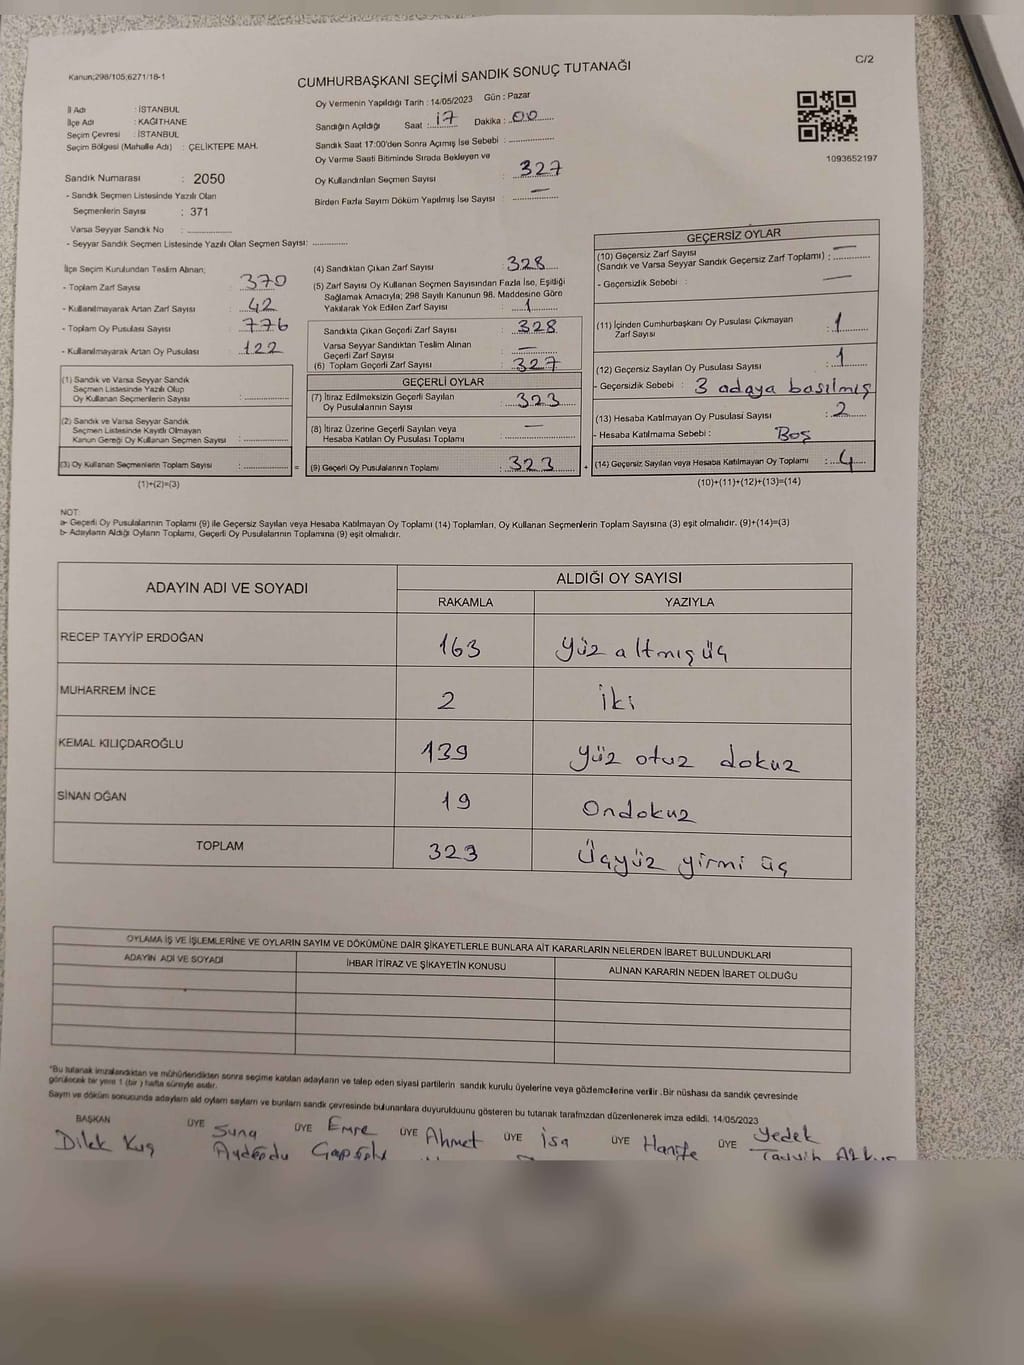 Kanun;298/105;6271/18-1
C/2
CUMHURBAŞKANI SEÇİMİ SANDIK SONUÇ TUTANAĞI
İl Adı : İSTANBUL
İlçe Adı : KAĞITHANE
Seçim Çevresi : İSTANBUL
Seçim Bölgesi (Mahalle Adı) : ÇELİKTEPE MAH.
Sandık Numarası : 2050
- Sandık Seçmen Listesinde Yazılı Olan
Seçmenlerin Sayısı : 371
Varsa Seyyar Sandık No :
- Seyyar Sandık Seçmen Listesinde Yazılı Olan Seçmen Sayısı:
Oy Vermenin Yapıldığı Tarih : 14/05/2023 Gün : Pazar
Sandığın Açıldığı Saat : 17 Dakika : 00
Sandık Saat 17:00'den Sonra Açımış İse Sebebi :
Oy Verme Saati Bitiminde Sırada Bekleyen ve
Oy Kullandırılan Seçmen Sayısı : 327
Birden Fazla Sayım Döküm Yapılmış İse Sayısı : —
1093652197
İlçe Seçim Kurulundan Teslim Alınan;
- Toplam Zarf Sayısı : 370
- Kullanılmayarak Artan Zarf Sayısı : 42
- Toplam Oy Pusulası Sayısı : 776
- Kullanılmayarak Artan Oy Pusulası : 122
(1) Sandık ve Varsa Seyyar Sandık
Seçmen Listesinde Yazılı Olup
Oy Kullanan Seçmenlerin Sayısı :
(2) Sandık ve Varsa Seyyar Sandık
Seçmen Listesinde Kayıtlı Olmayan
Kanun Gereği Oy Kullanan Seçmen Sayısı :
(3) Oy Kullanan Seçmenlerin Toplam Sayısı : =
(1)+(2)=(3)
(4) Sandıktan Çıkan Zarf Sayısı : 328
(5) Zarf Sayısı Oy Kullanan Seçmen Sayısından Fazla İse, Eşitliği
Sağlamak Amacıyla; 298 Sayılı Kanunun 98. Maddesine Göre
Yakılarak Yok Edilen Zarf Sayısı : 1
Sandıkta Çıkan Geçerli Zarf Sayısı : 328
Varsa Seyyar Sandıktan Teslim Alınan
Geçerli Zarf Sayısı : —
(6) Toplam Geçerli Zarf Sayısı : 327
GEÇERLİ OYLAR
(7) İtiraz Edilmeksizin Geçerli Sayılan
Oy Pusulalarının Sayısı : 323
(8) İtiraz Üzerine Geçerli Sayılan veya
Hesaba Katılan Oy Pusulası Toplamı : —
(9) Geçerli Oy Pusulalarının Toplamı : 323 +
GEÇERSİZ OYLAR
(10) Geçersiz Zarf Sayısı
(Sandık ve Varsa Seyyar Sandık Geçersiz Zarf Toplamı) : —
- Geçersizlik Sebebi : —
(11) İçinden Cumhurbaşkanı Oy Pusulası Çıkmayan
Zarf Sayısı : 1
(12) Geçersiz Sayılan Oy Pusulası Sayısı : 1
- Geçersizlik Sebebi : 3 adaya basılmış
(13) Hesaba Katılmayan Oy Pusulası Sayısı : 2
- Hesaba Katılmama Sebebi : Boş
(14) Geçersiz Sayılan veya Hesaba Katılmayan Oy Toplamı : 4
(10)+(11)+(12)+(13)=(14)
NOT:
a- Geçerli Oy Pusulalarının Toplamı (9) ile Geçersiz Sayılan veya Hesaba Katılmayan Oy Toplamı (14) Toplamları, Oy Kullanan Seçmenlerin Toplam Sayısına (3) eşit olmalıdır. (9)+(14)=(3)
b- Adayların Aldığı Oyların Toplamı, Geçerli Oy Pusulalarının Toplamına (9) eşit olmalıdır.
ADAYIN ADI VE SOYADI
ALDIĞI OY SAYISI
RAKAMLA YAZIYLA
RECEP TAYYİP ERDOĞAN 163 yüz altmış üç
MUHARREM İNCE 2 iki
KEMAL KILIÇDAROĞLU 139 yüz otuz dokuz
SİNAN OĞAN 19 Ondokuz
TOPLAM 323 Üçyüz yirmi üç
OYLAMA İŞ VE İŞLEMLERİNE VE OYLARIN SAYIM VE DÖKÜMÜNE DAİR ŞİKAYETLERLE BUNLARA AİT KARARLARIN NELERDEN İBARET BULUNDUKLARI
ADAYIN ADI VE SOYADI İHBAR İTİRAZ VE ŞİKAYETİN KONUSU ALINAN KARARIN NEDEN İBARET OLDUĞU
"Bu tutanak imzalandıktan ve mühürlendikten sonra seçime katılan adayların ve talep eden siyasi partilerin sandık kurulu üyelerine veya gözlemcilerine verilir .Bir nüshası da sandık çevresinde
görülecek bir yere 1 (bir ) hafta süreyle asılır.
Sayım ve döküm sonucunda adayların aldı oyların sayıların ve bunların sandık çevresinde bulunanlara duyurulduunu gösteren bu tutanak tarafımzdan düzenlenerek imza edildi. 14/05/2023
BAŞKAN ÜYE ÜYE ÜYE ÜYE ÜYE ÜYE
Dilek Kuş Suna Emre Ahmet İsa Hanife Yedek